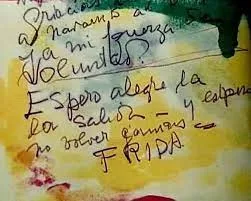 Gracias
a Navarro al
y a mi fuerza
Voluntad.
Espero alegre la
la salida y espero
no volver jamás
FRIDA